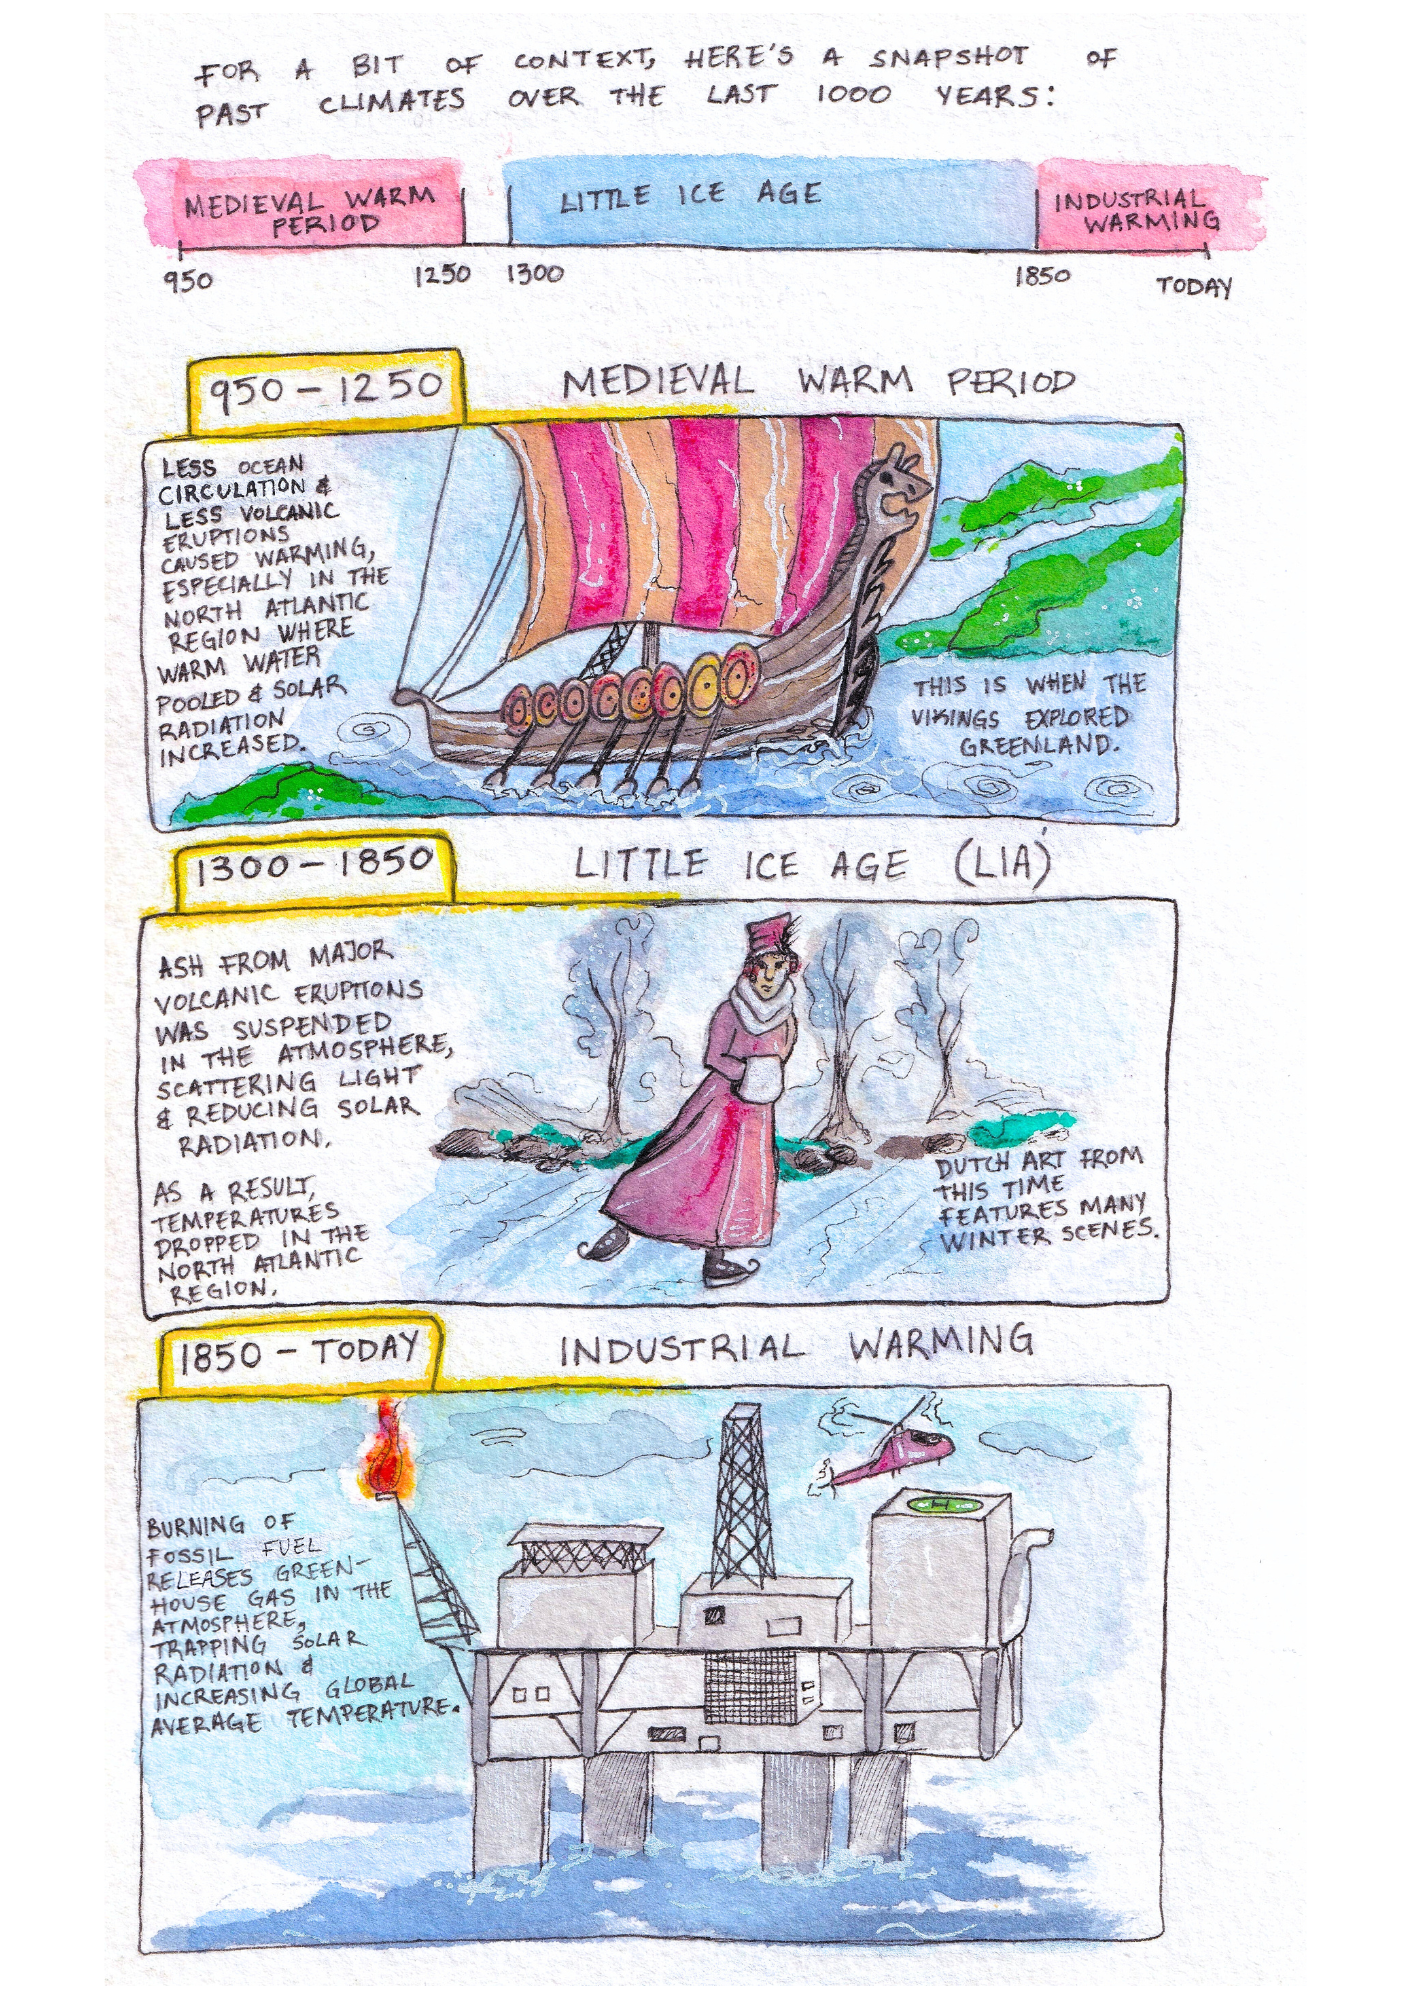 FOR A BIT OF CONTEXT, HERE'S A SNAPSHOT OF
PAST CLIMATES OVER THE LAST 1000 YEARS:
MEDIEVAL WARM
PERIOD
LITTLE ICE AGE
INDUSTRIAL
WARMING
950
1250
1300
1850
TODAY
950-1250
MEDIEVAL WARM PERIOD
LESS OCEAN
CIRCULATION &
LESS VOLCANIC
ERUPTIONS
CAUSED WARMING,
ESPECIALLY IN THE
NORTH ATLANTIC
REGION WHERE
WARM WATER
POOLED & SOLAR
RADIATION
INCREASED.
THIS IS WHEN THE
VIKINGS EXPLORED
GREENLAND.
1300-1850
LITTLE ICE AGE (LIA)
ASH FROM MAJOR
VOLCANIC ERUPTIONS
WAS SUSPENDED
IN THE ATMOSPHERE,
SCATTERING LIGHT
& REDUCING SOLAR
RADIATION.
AS A RESULT,
TEMPERATURES
DROPPED IN THE
NORTH ATLANTIC
REGION.
DUTCH ART FROM
THIS TIME
FEATURES MANY
WINTER SCENES.
1850-TODAY
INDUSTRIAL WARMING
BURNING OF
FOSSIL FUEL
RELEASES GREEN-
HOUSE GAS IN THE
ATMOSPHERE,
TRAPPING SOLAR
RADIATION &
INCREASING GLOBAL
AVERAGE TEMPERATURE.
H